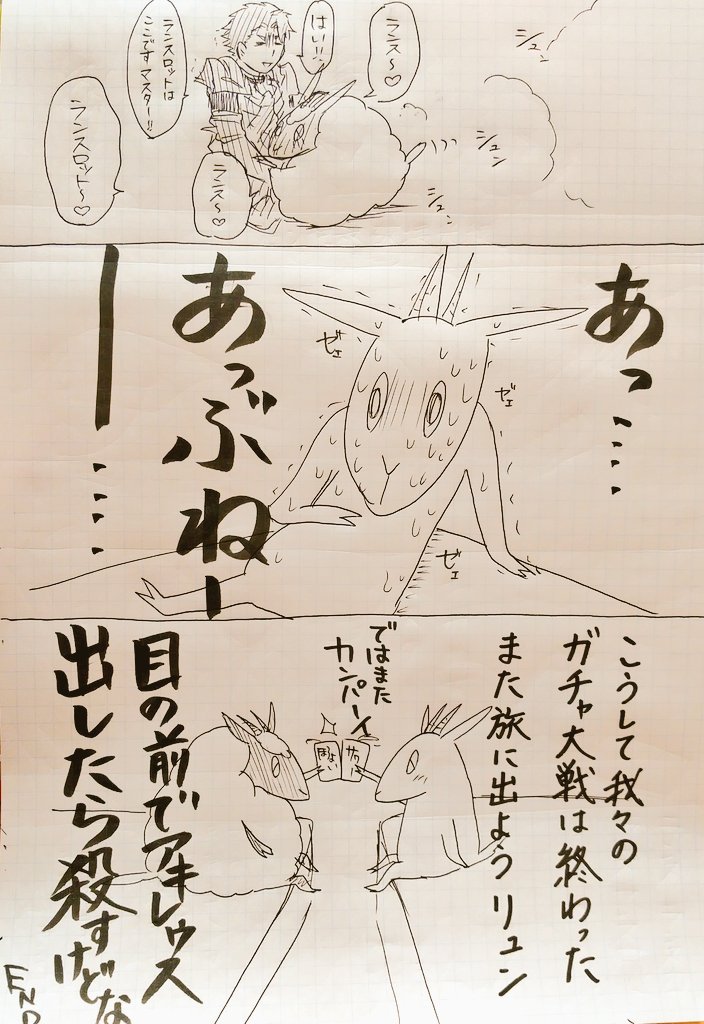 シュン
ランス〜♡
はいッ!!
ランスロットは
ここですマスター!!
シュン
シュン
ランス〜♡
ランスロット〜♡
あっ‥‥‥
ゼェ
ゼェ
ゼェ
あっぶねー
ー‥‥
こうして我々の
ガチャ大戦は終わった
また旅に出ようリュン
ではまた
カンパーイ
サワー
目の前でアキレウス
出したら殺すけどな
END